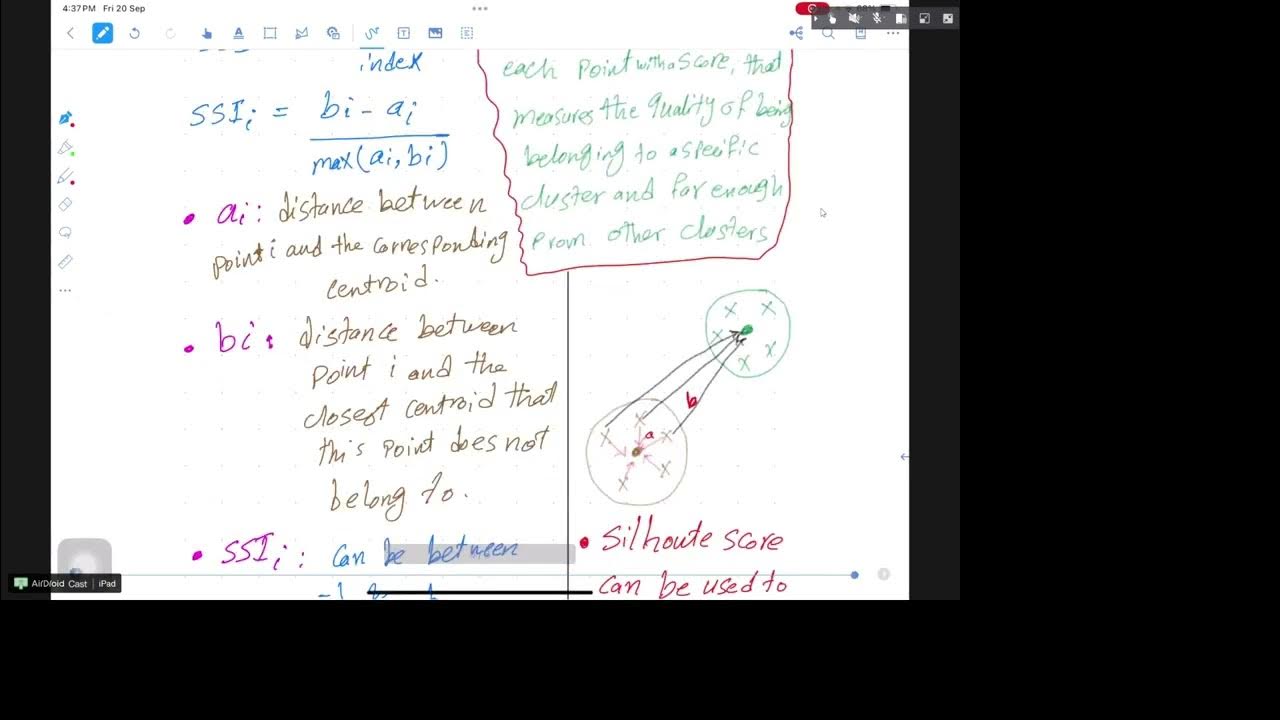 4:37PM Fri 20 Sep
index
SSIi = bi - ai
max(ai, bi)
• ai: distance between
point i and the corresponding
centroid.
• bi: distance between
point i and the
closest centroid that
this point does not
belong to.
• SSIi: can be between
-1
each point with a score, that
measures the quality of being
belonging to a specific
cluster and far enough
from other clusters
b
a
• Silhoute score
can be used to
AirDroid Cast | iPad